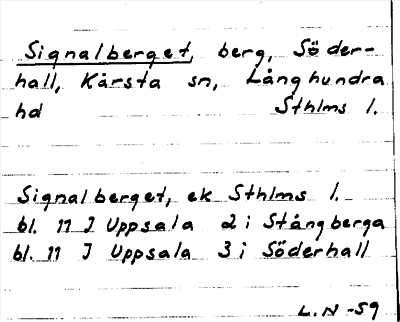 Signalberget, berg, Söder-
hall, Kårsta sn, Långhundra
hd Sthlms l.
Signalberget, ek Sthlms l.
bl. 11 I Uppsala 2 i Stångberga
bl. 11 I Uppsala 3 i Söderhall
L.N -59